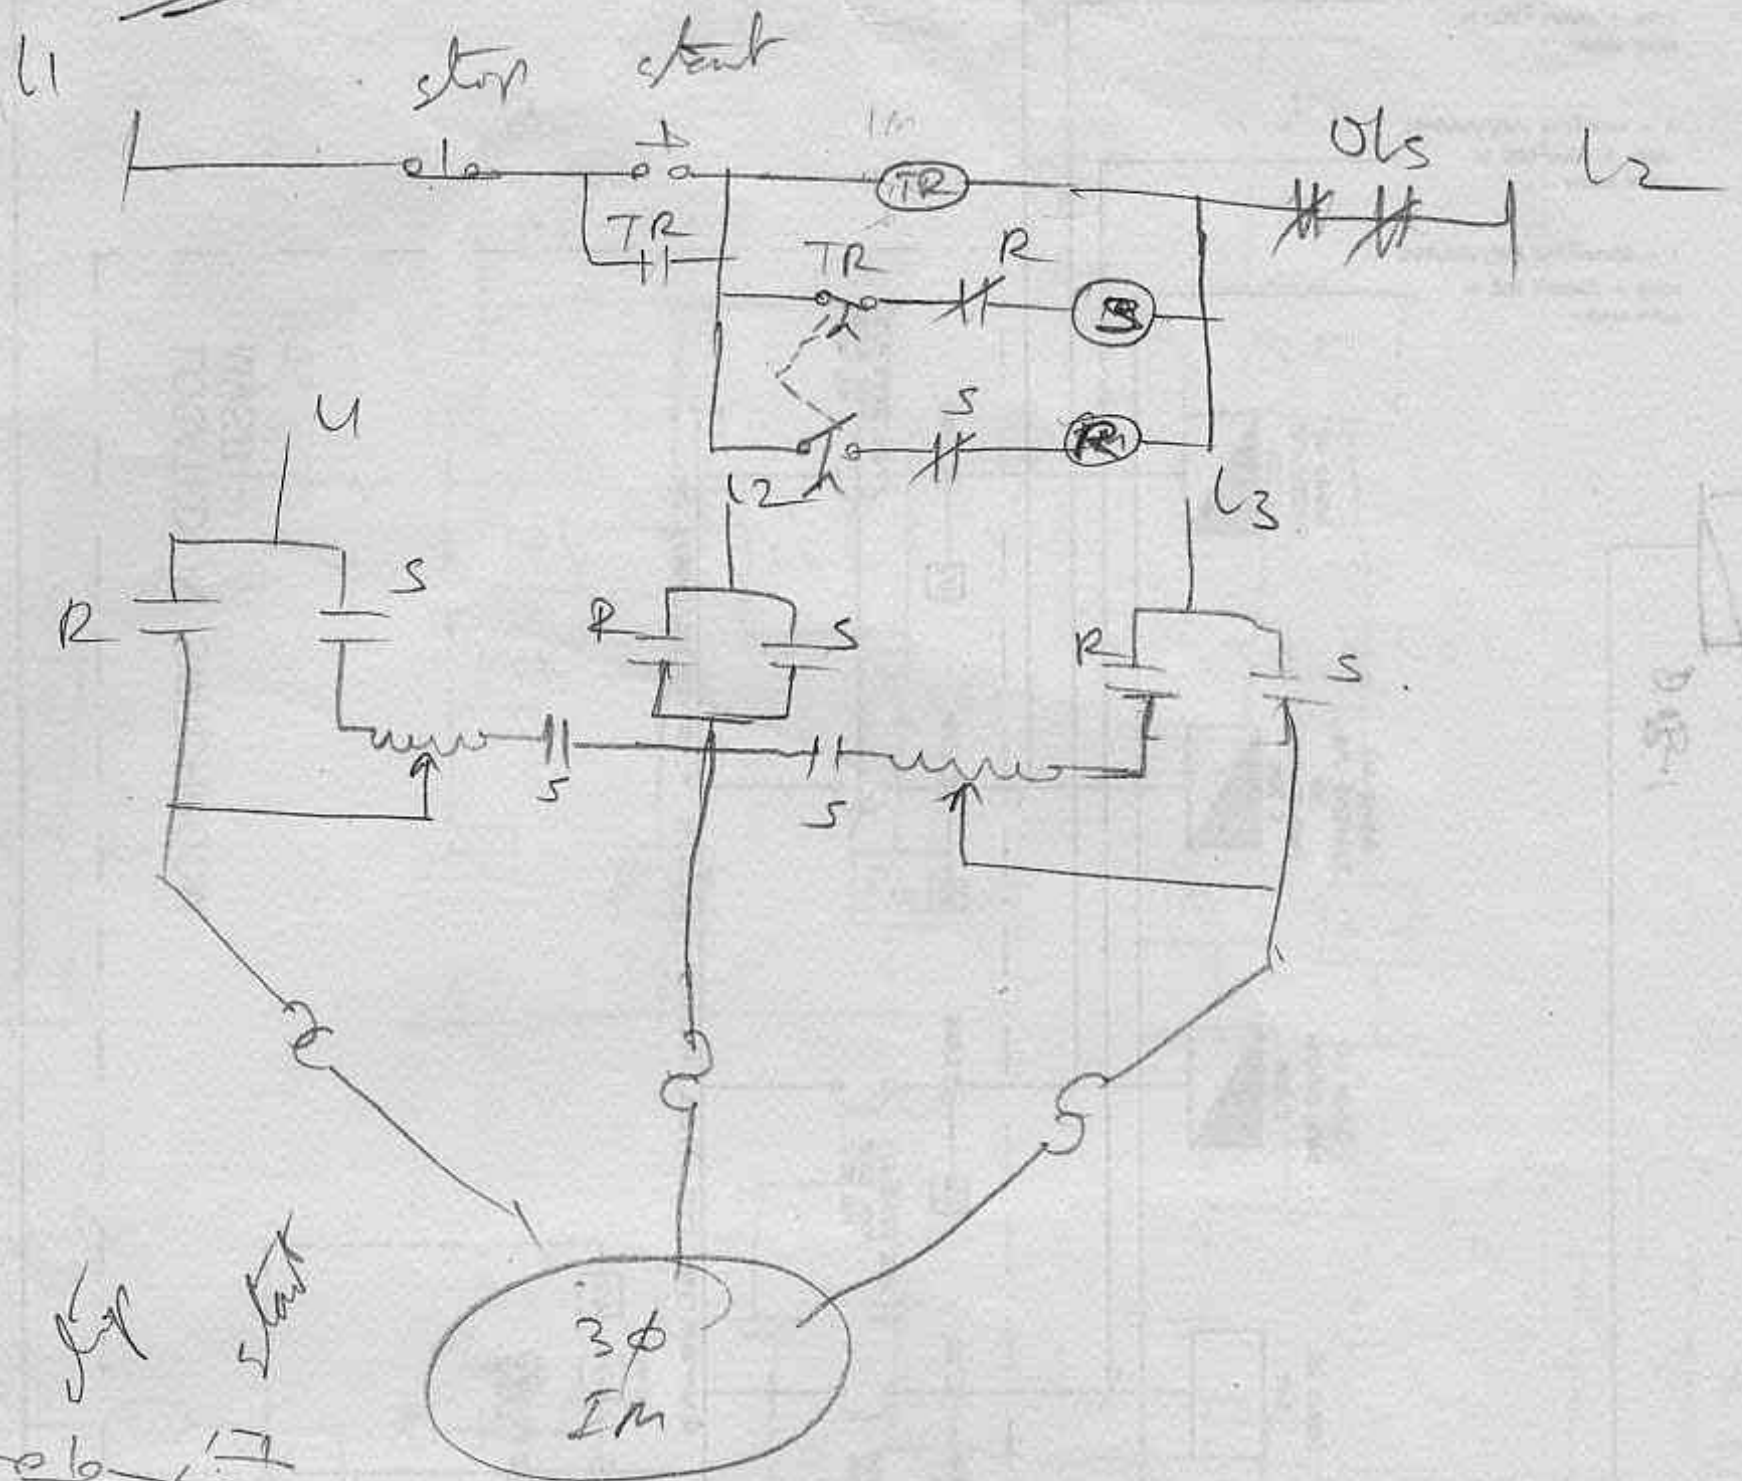 L1 stop start
1M
OLs L2
TR
TR
TR R S
S R
L1 L2 L3
R S R S R S
S S
3φ
IM
stop start